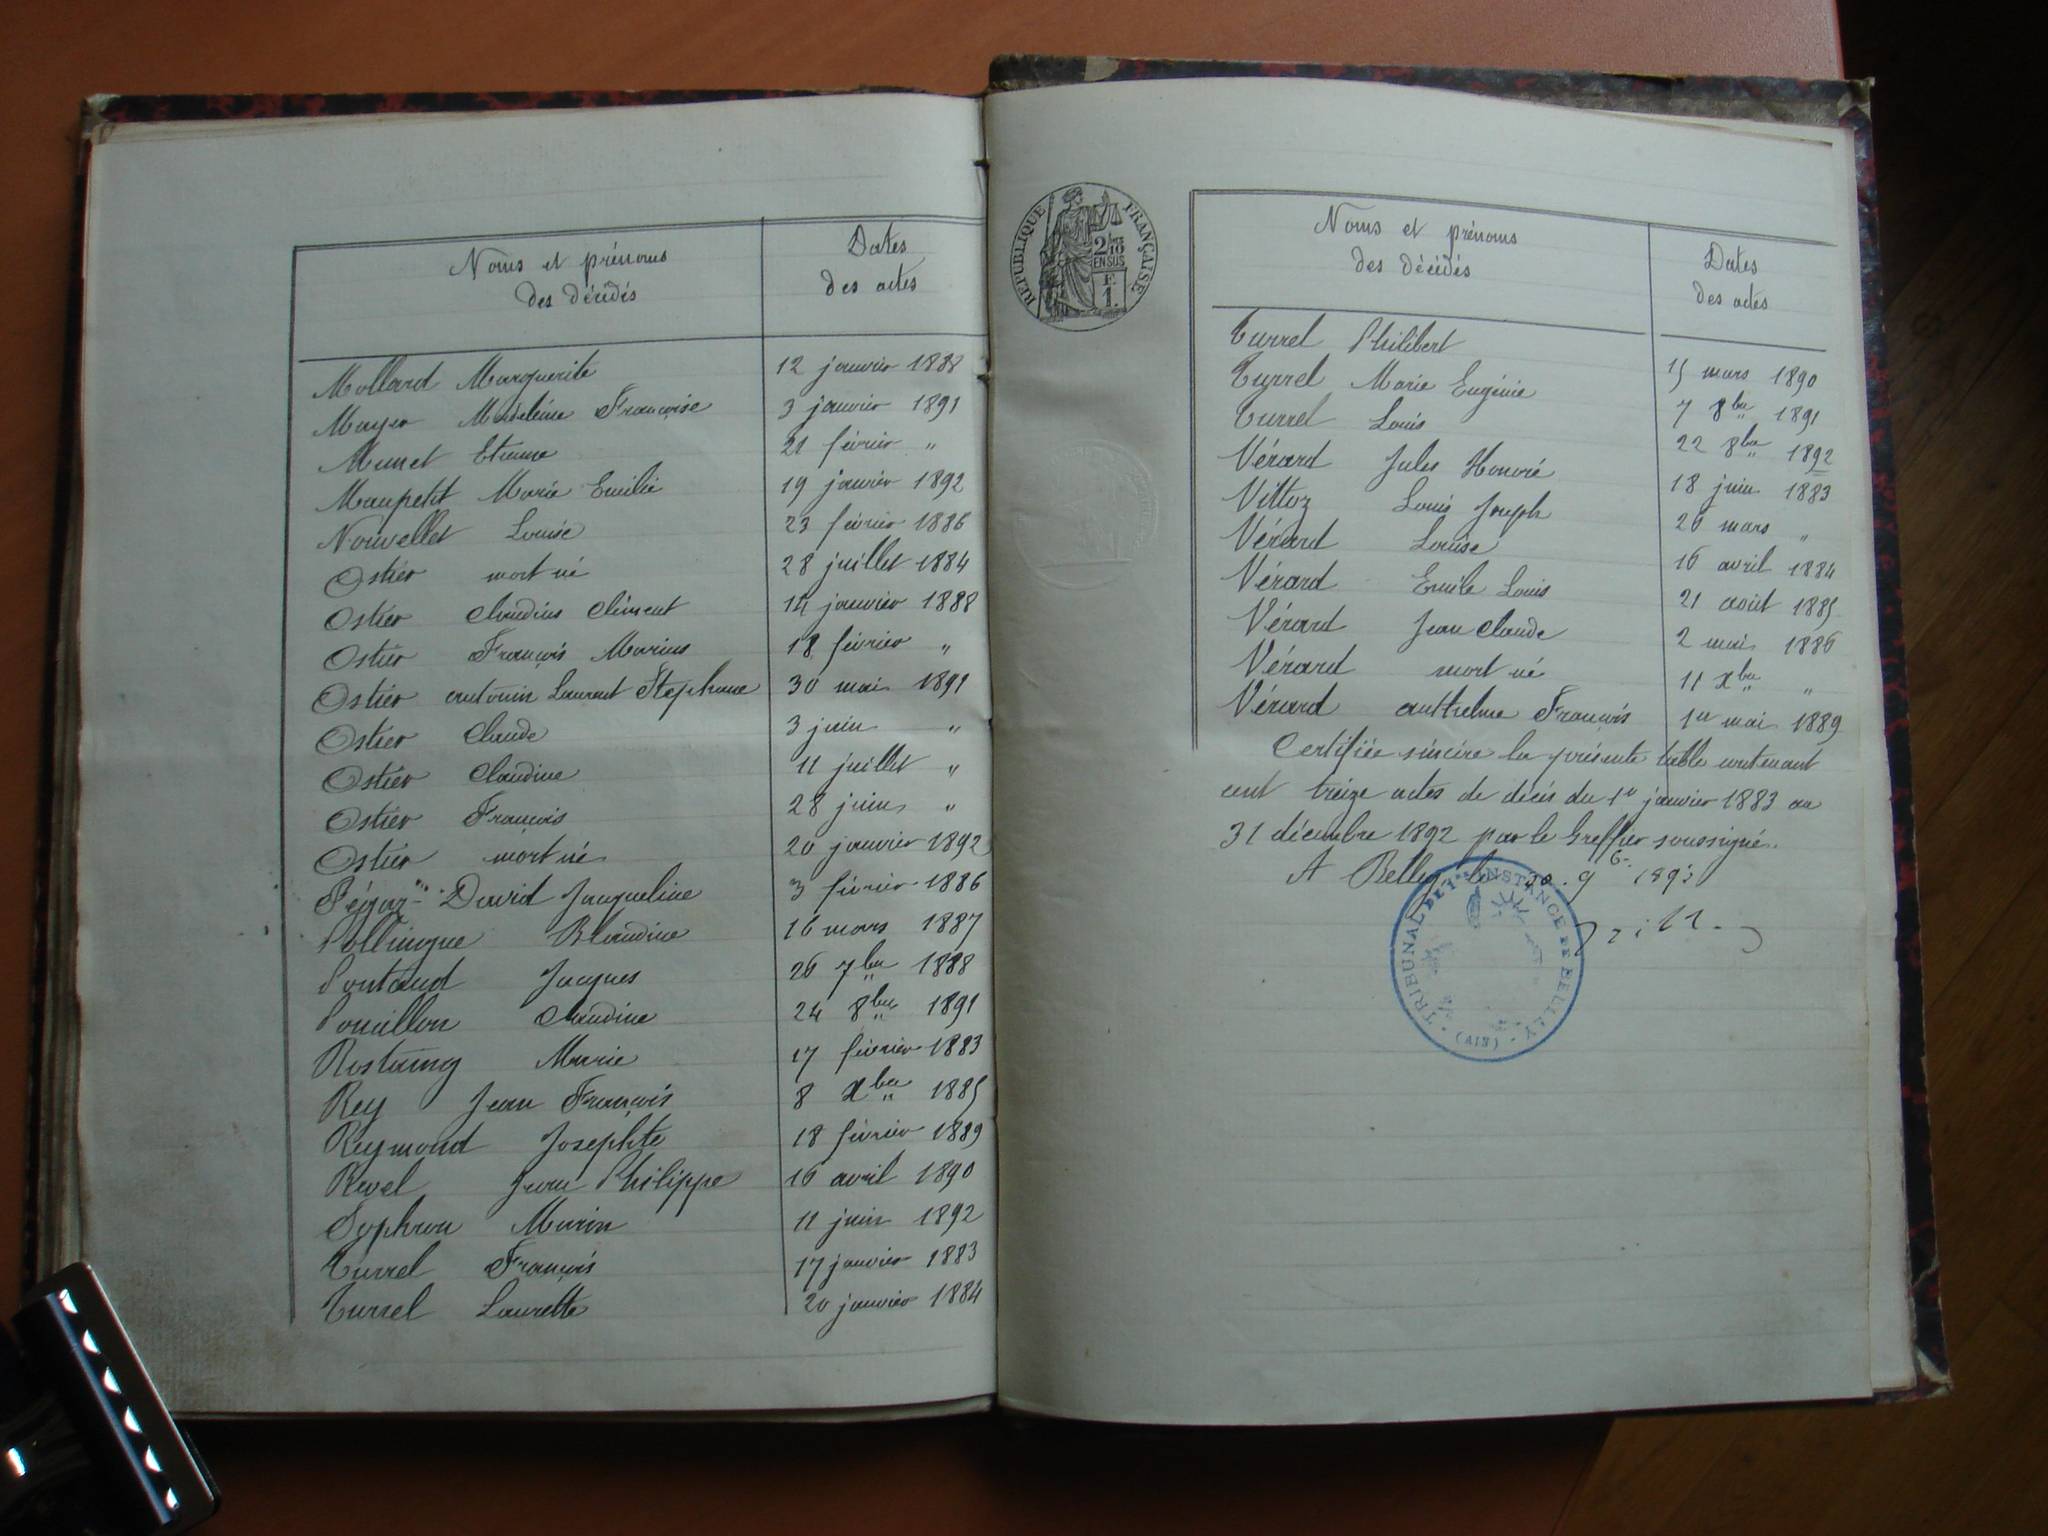 Noms et prénoms
des décédés
Dates
des actes
Mollard Marguerite 12 janvier 1888
Mayer Madeleine Françoise 3 janvier 1891
Munet Etienne 21 février "
Maupetit Marie Emilie 19 janvier 1892
Nouvellet Louise 23 février 1886
Ostier mort né 28 juillet 1884
Ostier Claudius Clément 14 janvier 1888
Ostier François Marius 18 février "
Ostier antonin Laurent Stephane 30 mai 1891
Ostier Claude 3 juin "
Ostier Claudine 11 juillet "
Ostier François 28 juin "
Ostier mort né 20 janvier 1892
Pégaz David Jacqueline 3 février 1886
Pollingue Blandine 16 mars 1887
Pontaud Jacques 26 7bre 1888
Pouillon Claudine 24 8bre 1891
Rostaing Marie 17 février 1883
Rey Jean François 8 Xbre 1885
Reymond Josephte 18 février 1889
Revel Jean Philippe 16 avril 1890
Sophron Marin 11 juin 1892
Turrel François 17 janvier 1883
Turrel Laurette 20 janvier 1884
RÉPUBLIQUE FRANÇAISE
2/10
EN SUS
F.
1.
Noms et prénoms
des décédés
Dates
des actes
Turrel Philibert 15 mars 1890
Turrel Marie Eugénie 7 8bre 1891
Turrel Louis 22 8bre 1892
Vérard Jules Honoré 18 juin 1883
Vittoz Louis Joseph 26 mars "
Vérard Louise 16 avril 1884
Vérard Emile Louis 21 août 1885
Vérard Jean Claude 2 mai 1886
Vérard mort né 11 Xbre "
Vérard anthelme François 1er mai 1889
Certifiée sincère la présente table contenant
cent treize actes de décès du 1er janvier 1883 au
31 décembre 1892 par le Greffier soussigné.
A Belley le 9 1893
TRIBUNAL DE 1re INSTANCE DE BELLEY
(AIN)